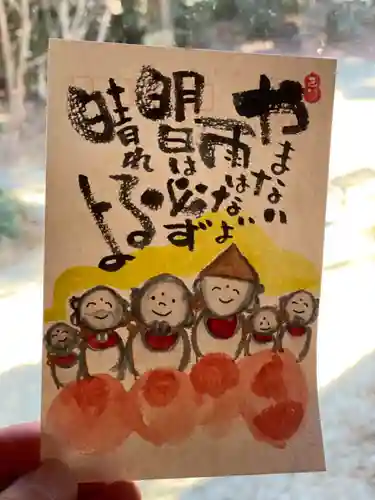 やまない
雨はないぜよ
明日は必ず
晴れ
るよ